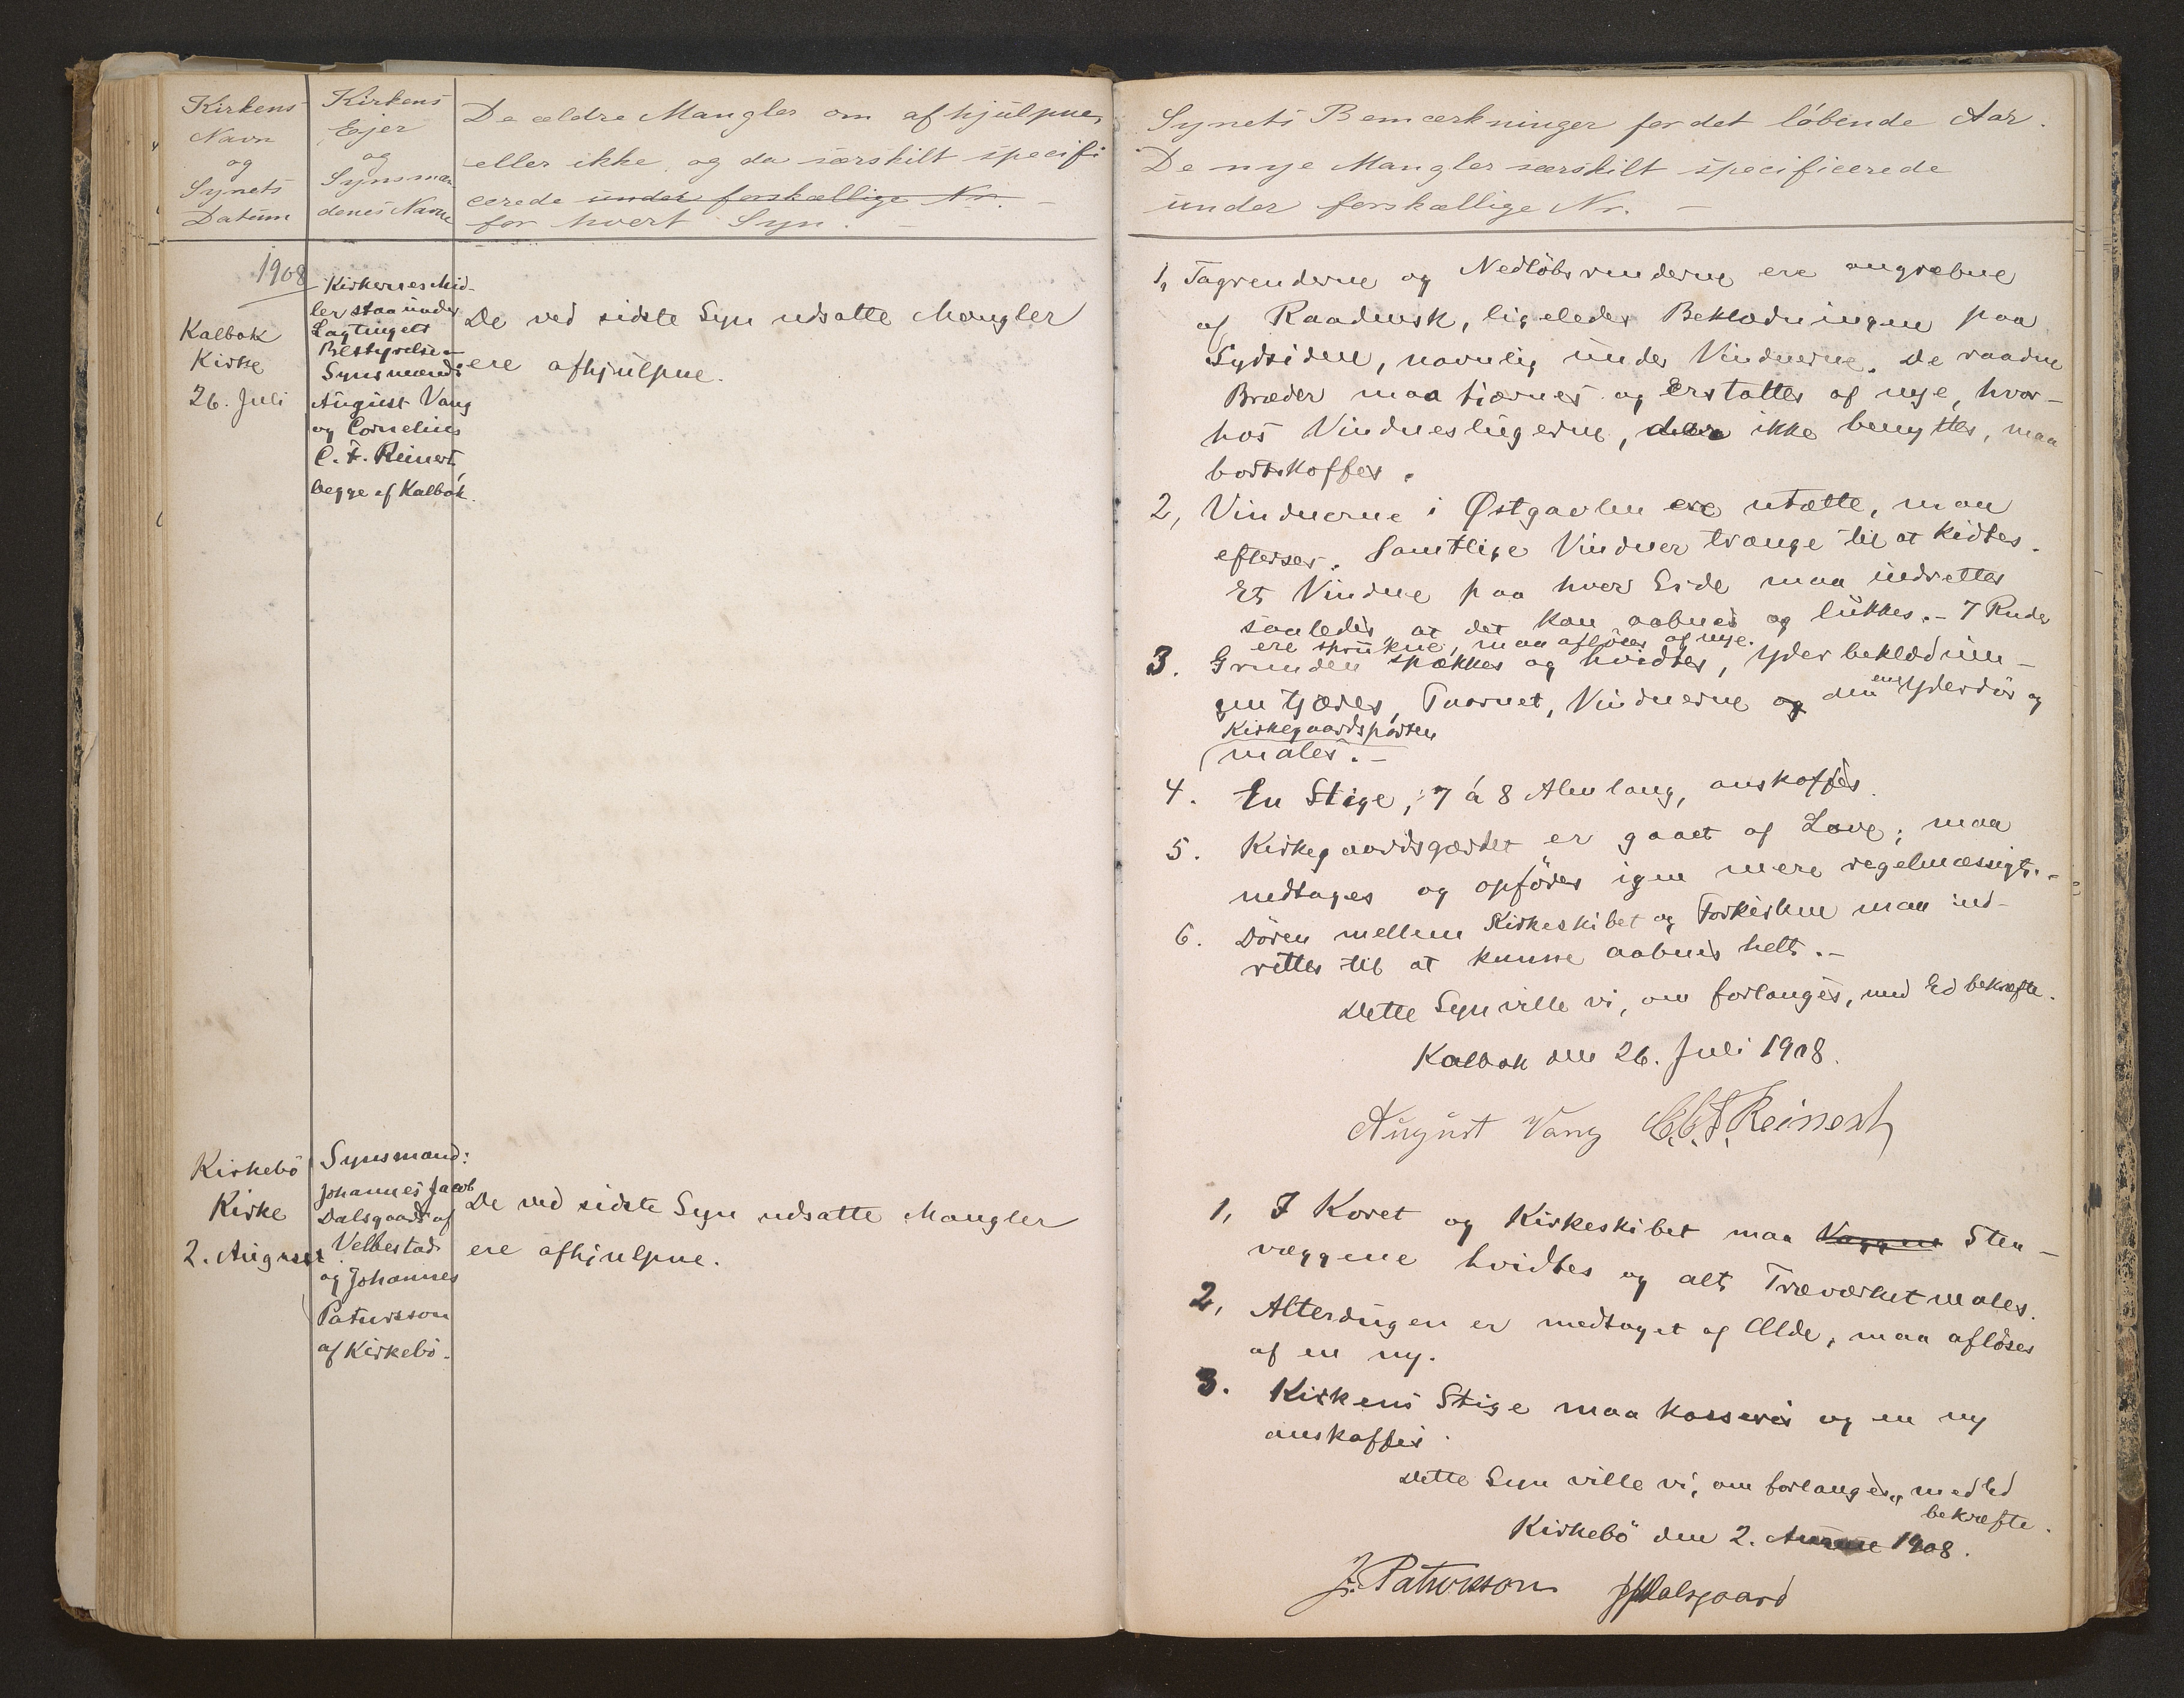 Kirkens
Navn
og
Synets
Datum
Kirkens
Ejer
og
Synsmæn
denes Navne
De ældre Mangler om afhjulpne,
eller ikke, og da særskilt specifi
cerede under forskællige Nr. –
for hvert Syn. –
1908
Kalbak
Kirke
26. Juli
Kirkernes Mid-
ler staa under
Lagtingets
Bestyrelse –
Synsmænd:
August Vang
og Cornelius
C. F. Reinert,
begge af Kalbak.
De ved sidste Syn udsatte Mangler
ere afhjulpne.
Kirkebö
Kirke
2. August
Synsmænd:
Johannes Jacob
Dalsgaard af
Velbestad
og Johannes
Patursson
af Kirkebö.
De ved sidste Syn udsatte Mangler
ere afhjulpne.
Synets Bemærkninger for det löbende Aar.
De nye Mangler særskilt specificerede
under forskællige Nr. –
1, Tagrenderne og Nedlöbsrenderne ere angrebne
af Raadensk, ligeledes Beklædningen paa
Sydsiden, navnlig under Vinduerne. De raadne
Bræder maa fjærnes og erstattes af nye, hvor-
hos Vindueslugerne, der ikke benyttes, maa
bortskaffes.
2, Vinduerne i Østgavlen ere utætte, maa
efterses. Samtlige Vinduer trænge til at kidtes.
Et Vindue paa hver Side maa indrettes
saaledes at det kan aabnes og lukkes. – 7 Ruder
ere sprukne, maa aflöses af nye.
3. Grunden spækkes og hvidtes, Yderbeklædnin-
gen tjæres, Taarnet, Vinduerne og den ene Yderdör og
Kirkegaardsporten
males. –
4. En Stige, 7 á 8 Alen lang, anskaffes.
5. Kirkegaardsgærdet er gaaet af Lave; maa
nedtages og opföres igen mere regelmæssigt. –
6. Dören mellem Kirkeskibet og Forkirken maa ind-
rettes til at kunne aabnes helt. –
Dette Syn ville vi, om forlanges, med Ed bekræfte.
Kalbak den 26. Juli 1908.
August Vang C.C.F. Reinert
1, I Koret og Kirkeskibet maa Væggene Sten –
væggene hvidtes og alt Træværket males.
2, Alterdugen er medtaget af Ælde, maa aflöses
af en ny.
3. Kirkens Stige maa kasseres og en ny
anskaffes.
Dette Syn ville vi, om forlanges, med Ed
bekræfte.
Kirkebö den 2. 1908.
J. Patursson JJDalsgaard